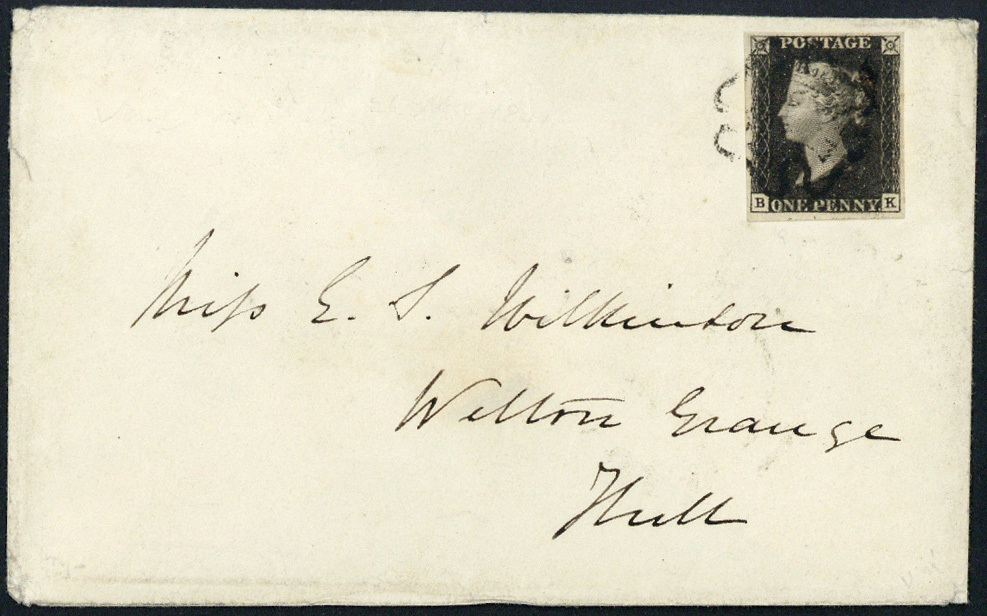 POSTAGE
B ONE PENNY. K
Miss E. S. Wilkinson
Welton Grange
Hull